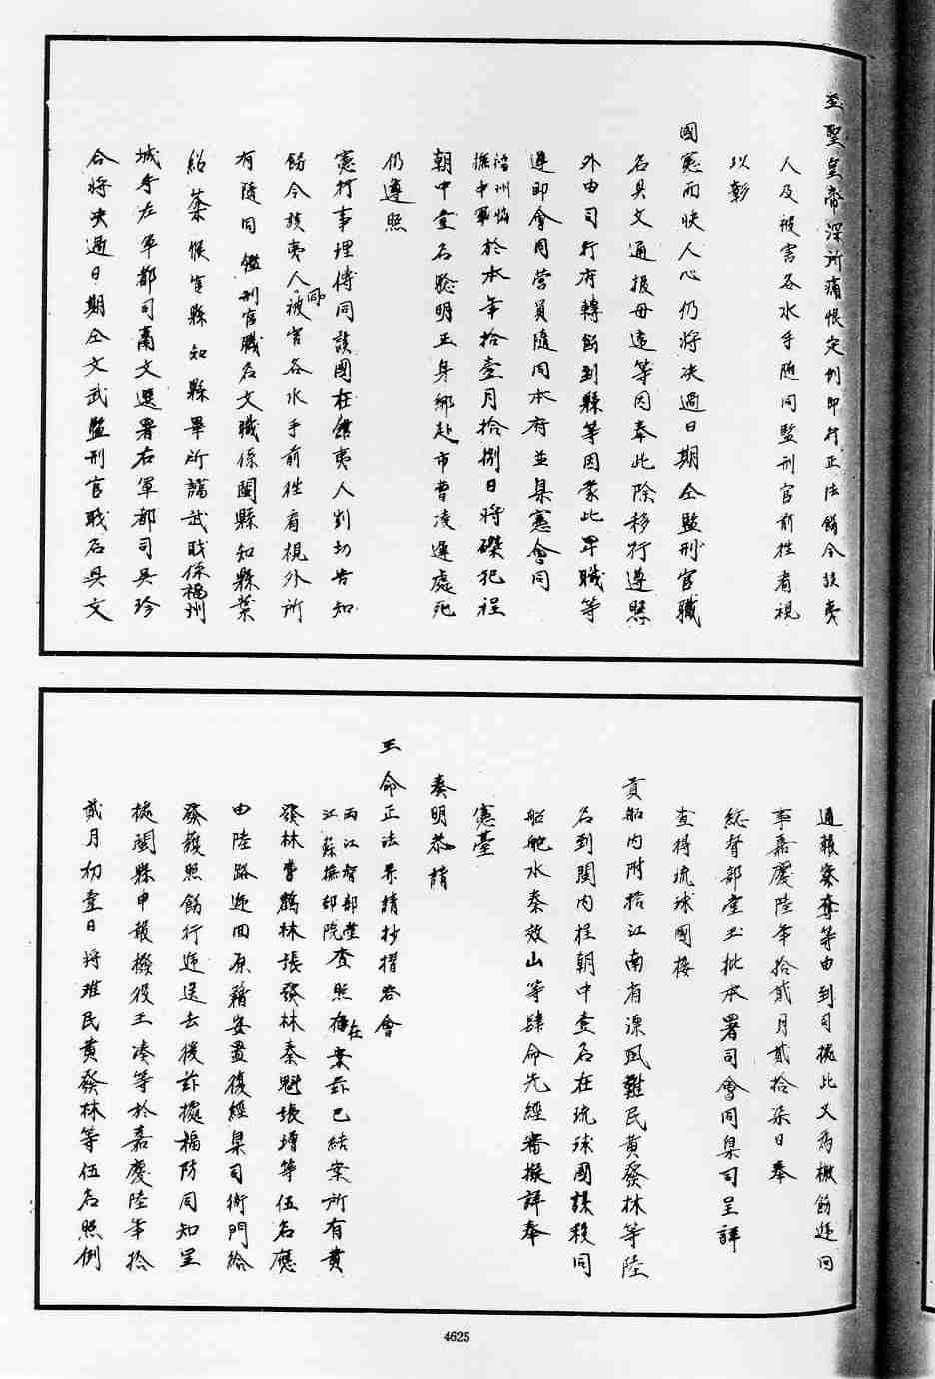 至聖皇帝深所痛恨定例即行正法飭令該夷
人及被害各水手隨同監刑官前徃看視
以彰
國憲而快人心仍將决過日期仝監刑官職
名具文通报毋違等因奉此除移行遵照
外由司行府轉飭到縣等因蒙此卑職等
遵即會同营員隨同本府並臬憲會同
福州城
撫中軍於本年拾壹月拾捌日將磔犯程
朝中壹名驗明正身鄉赴市曹凌遲處死
仍遵照
憲行事理傳同該國在館夷人剴切告知
飭令該夷人同被害各水手前徃看視外所
有隨同鑑刑官職名文職係閩縣知縣葉
紹棻候官縣知縣畢所譡武職係福州
城守左軍都司蕭文選署右軍都司吳珍
合將决過日期仝文武監刑官職名具文
通報察奪等由到司據此又為檄飭遞回
事嘉慶陸年拾貳月貳拾柒日奉
総督部堂玉批本署司會同臬司呈詳
查得琉球國接
貢船内附搭江南省漂風難民黄發林等陸
名到閩内程朝中壹名在琉球國謀殺同
船舵水秦效山等肆命先經審擬詳奉
憲臺
奏明恭請
王命正法并請抄摺咨會
兩江督部堂
江蘇撫部院查照在案玆已結案所有黄
發林曹鶴林張發林秦魁張增等伍名應
由陸路逓回原籍安置復經臬司衙門給
發護照飭行逓送去後玆據福防同知呈
據閩縣申報撥役王湊等於嘉慶陸年拾
貳月初壹日將难民黄發林等伍名照例
4625